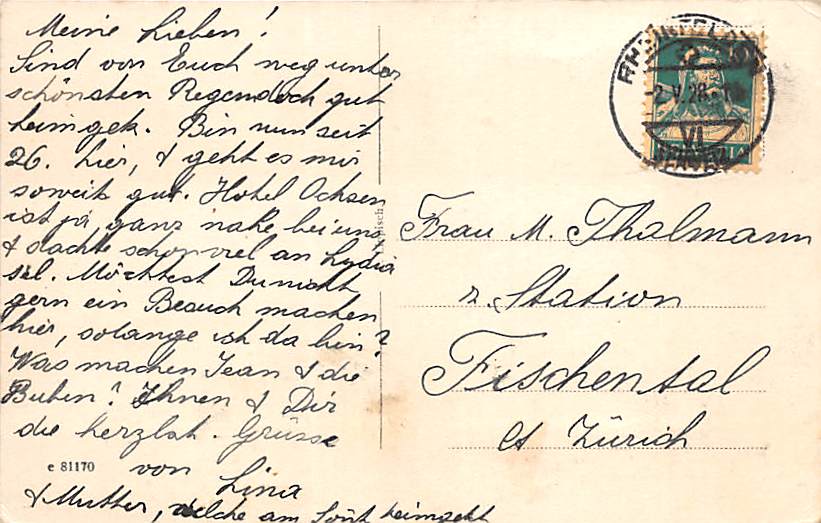 Meine Lieben!
Sind von Euch weg unter
schönsten Regen doch gut
heimgek. Bin nun seit
26. hier, & geht es mir
soweit gut. Hotel Ochsen
ist ja ganz nahe bei uns
& dachte schon viel an Lydia
sel. Möchtest Du nicht
gern ein Besuch machen
hier, solange ich da bin?
Was machen Jean & die
Buben? Ihnen & Dir
die herzlch. Grüsse
von Lina
& Mutter, welche am heimgeht
e 81170
RHEINFELDEN
2.V.28
VI
Frau M. Thalmann
z. Station
Fischental
Ct Zürich